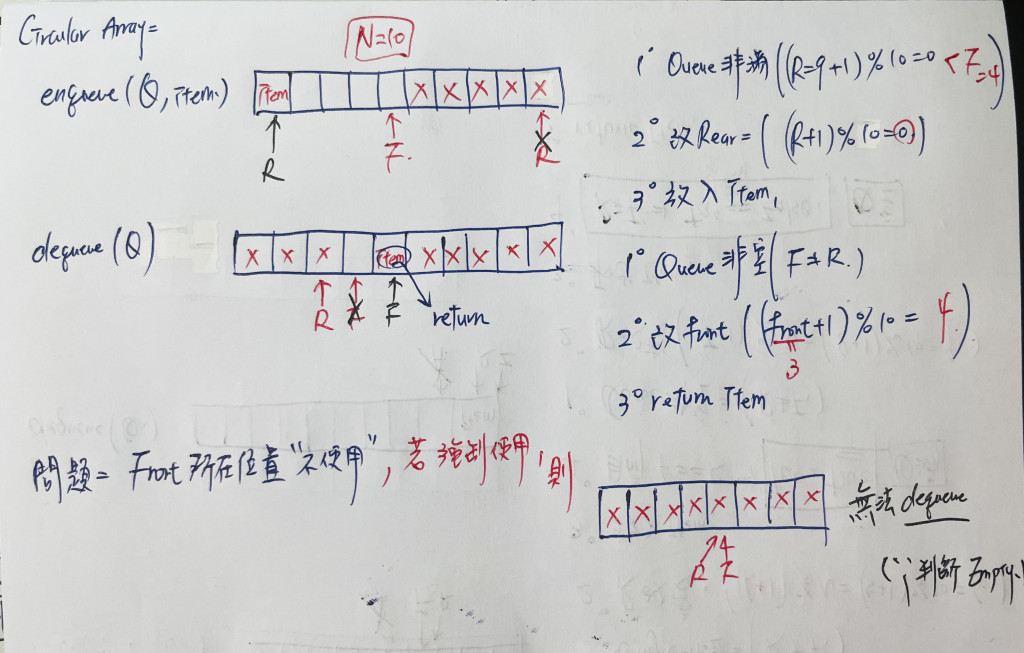 Circular Array=
N=10
enqueue(Q, Item.)
Item X X X X X
R F. R
1° Queue非滿((R=9+1)%10=0 < F=4)
2° 改Rear=((R+1)%10=0)
3° 放入Item,
dequeue(Q)
X X X Item X X X X X
R F F return
1° Queue非空(F≠R.)
2° 改front((front+1)%10= 4)
3
3° return Item
問題= Front所在位置"不使用", 若強制使用,則
X X X X X X X X
R F
無法dequeue
(∵判斷Empty.)